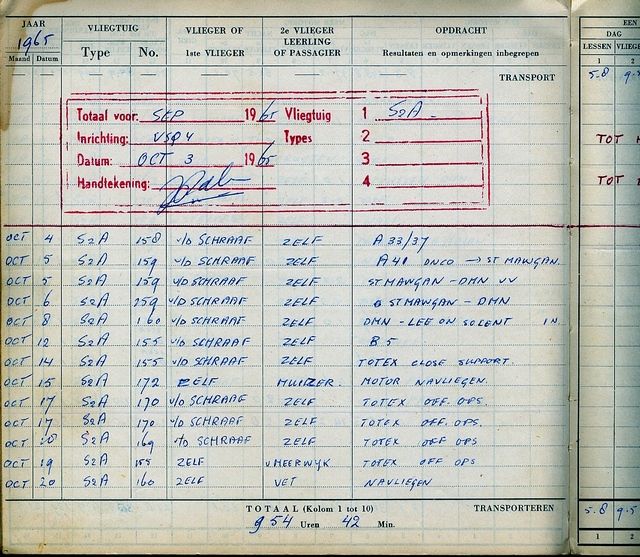 JAAR VLIEGTUIG VLIEGER OF 2e VLIEGER OPDRACHT EEN
1965 LEERLING DAG
Maand Datum Type No. 1ste VLIEGER OF PASSAGIER Resultaten en opmerkingen inbegrepen LESSEN VLIEG
1 2
TRANSPORT 5.8 9.5
Totaal voor: SEP 1965 Vliegtuig 1 S2A
Inrichting: VSQ4 Types 2 TOT
Datum: OCT 3 1965 3
Handtekening: 4 TOT
OCT 4 S2A 158 v/d SCHRAAF ZELF A 33/37
OCT 5 S2A 159 v/d SCHRAAF ZELF A41 DNCO → ST MAWGAN
OCT 5 S2A 159 v/d SCHRAAF ZELF ST MAWGAN - DMN VV
OCT 6 S2A 159 v/d SCHRAAF ZELF ST MAWGAN - DMN
OCT 8 S2A 160 v/d SCHRAAF ZELF DMN - LEE ON SOLENT IN
OCT 12 S2A 155 v/d SCHRAAF ZELF B5
OCT 14 S2A 155 v/d SCHRAAF ZELF TOTEX CLOSE SUPPORT.
OCT 15 S2A 172 ZELF MUIZER. MOTOR NAVLIEGEN.
OCT 17 S2A 170 v/d SCHRAAF ZELF TOTEX OFF. OPS.
OCT 17 S2A 170 v/d SCHRAAF ZELF TOTEX OFF. OPS.
OCT S2A 169 v/d SCHRAAF ZELF TOTEX OFF OPS
OCT 19 S2A 155 ZELF v MEERWYK TOTEX OFF OPS
OCT 20 S2A 160 ZELF VET NAVLIEGEN
TOTAAL (Kolom 1 tot 10) TRANSPORTEREN 5.8 9.5
954 Uren 42 Min.
1 2